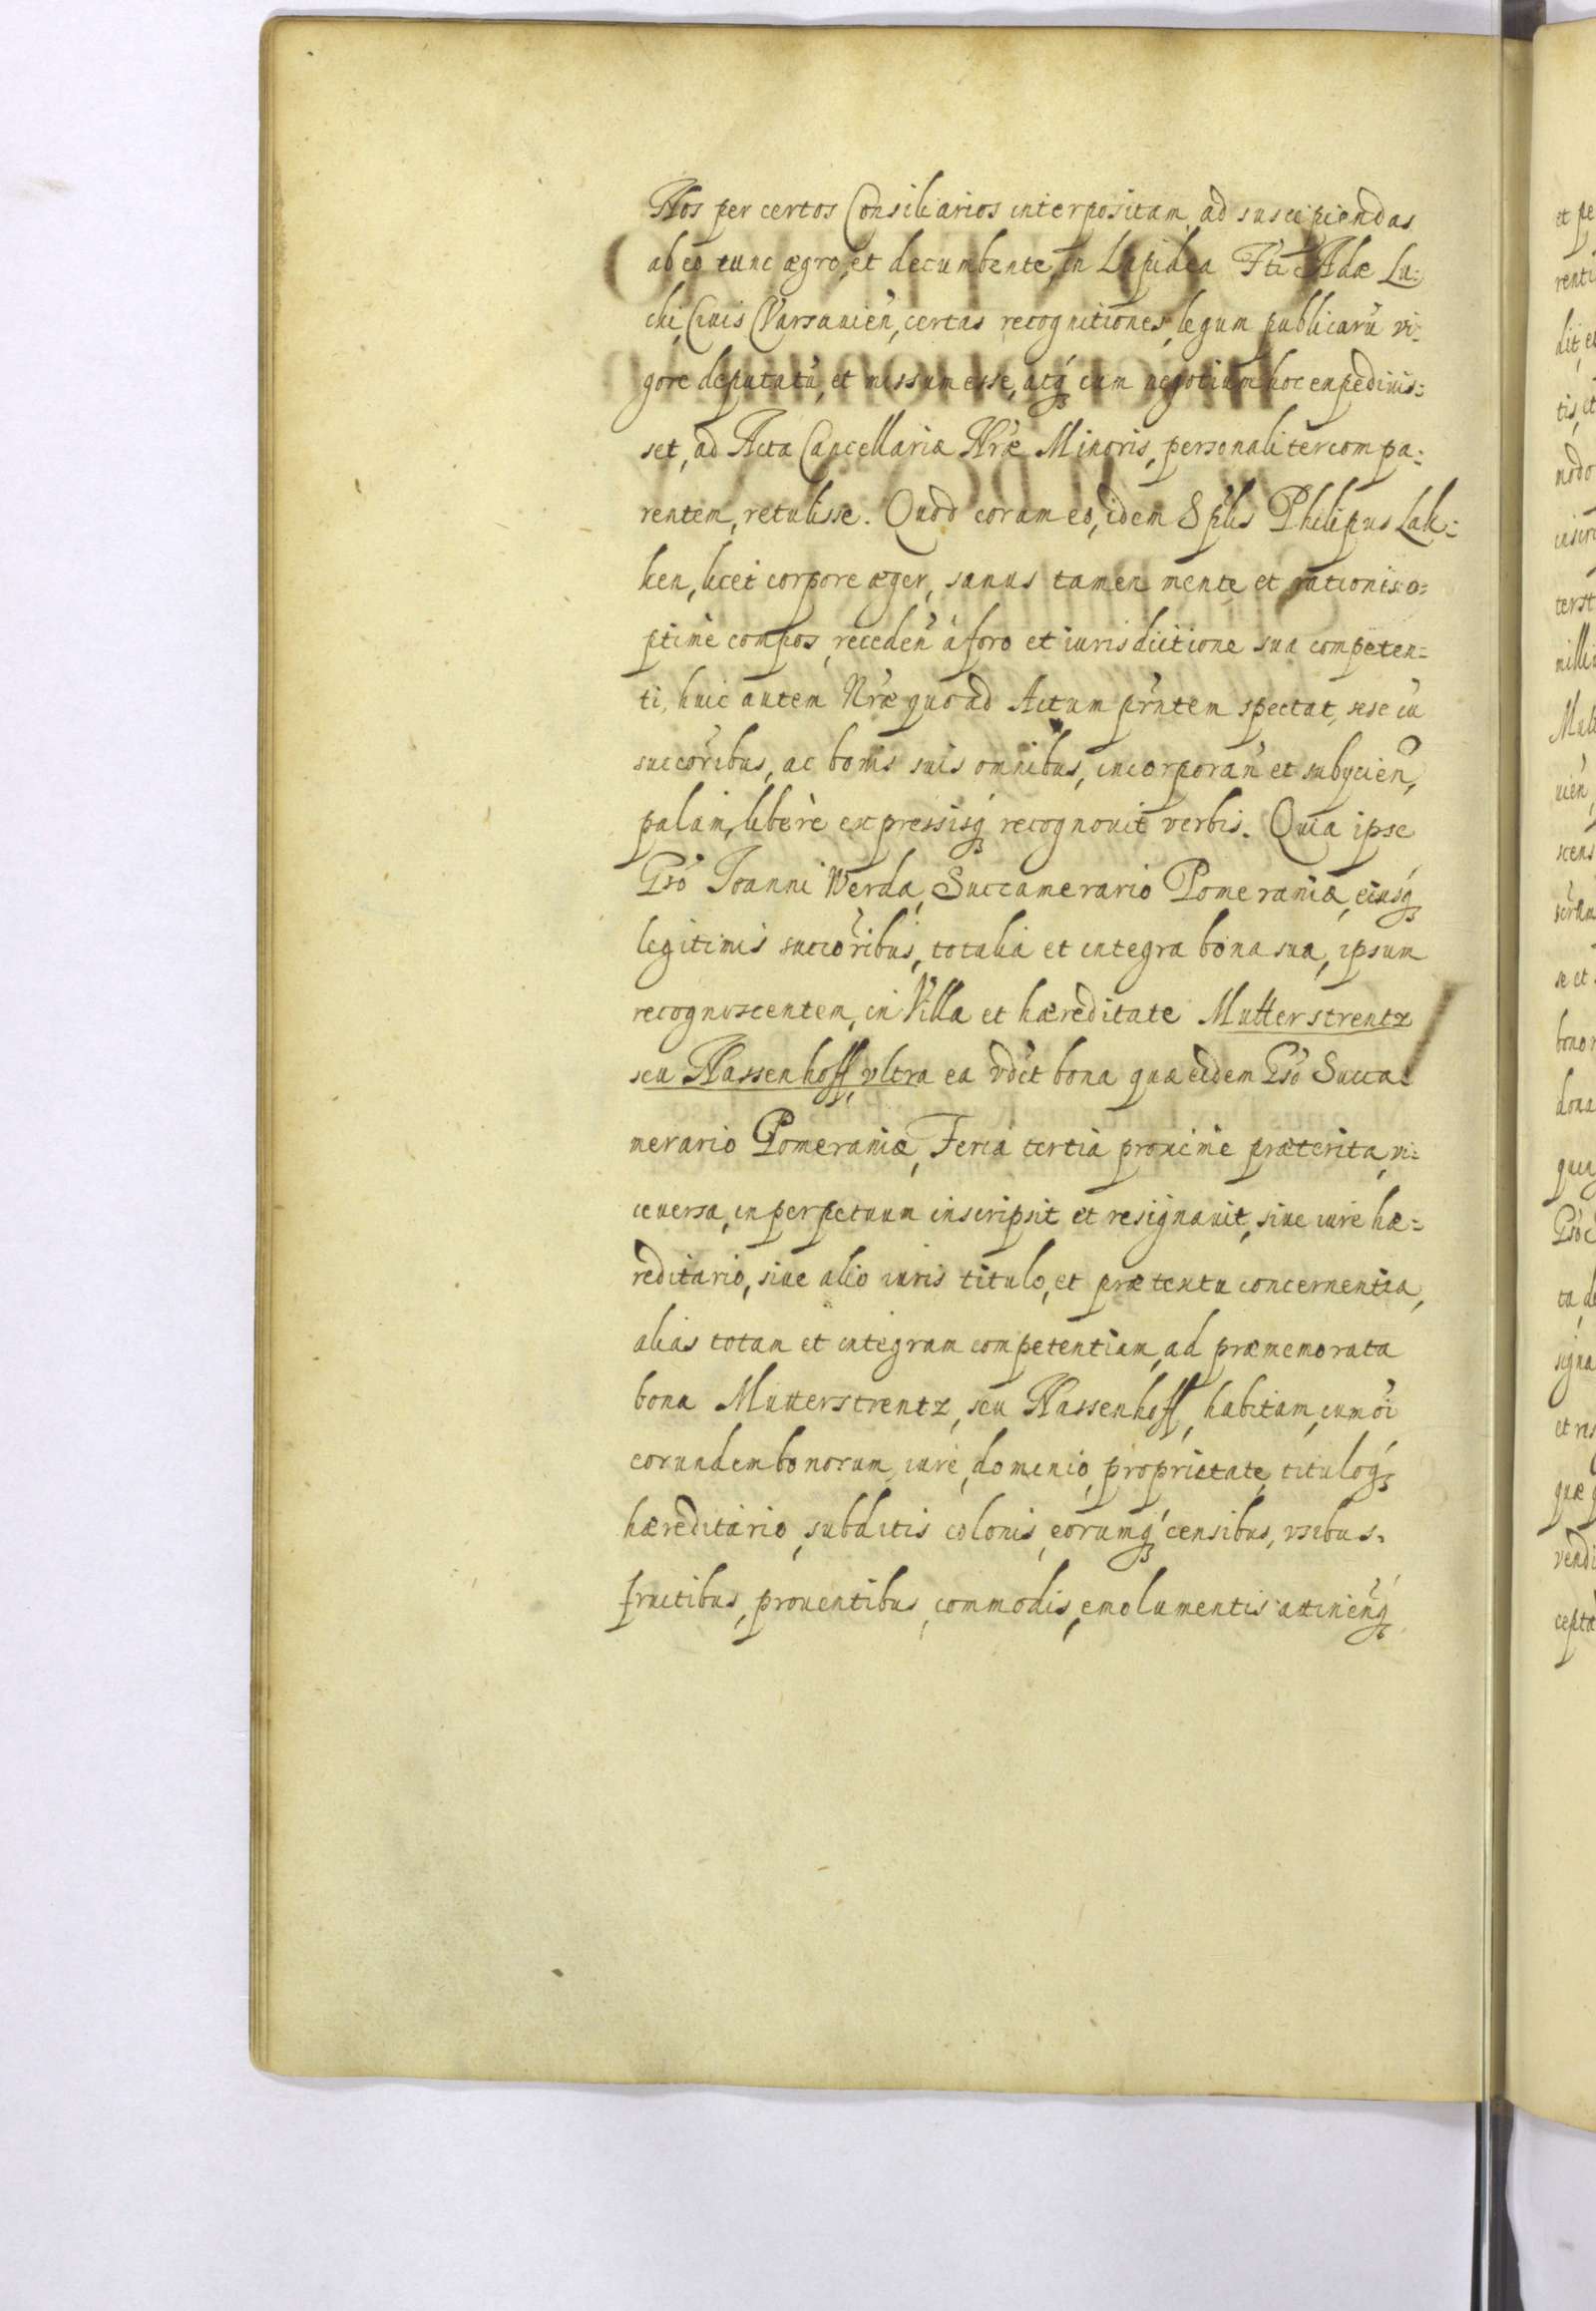 Nos per certos Consiliarios interpositam, ad suscipiendas
ab eo tunc ægro, et decumbente, in Lapidea Fti Adæ Lu:
chi, Ciuis Varsauien̄, certas recognitiones, legum publicarū vi:
gore deputatū, et missum esse, atq́ꝫ cum negotium hoc expediuis:
set, ad Acta Cancellariæ Nr̃æ Minoris, personaliter compa:
rentem, retulisse. Quod coram eo, idem Spl̃is Philipus Lak:
ken, licet corpore æger, sanus tamen mente et rationis o=
ptimè compos, receden̄ à foro et iurisdictione sua competen=
ti, huic autem Nr̃æ quo ad Actum prn̄tem spectat, sese cū
succor̃ibus, ac bonis suis omnibus, incorporan̄ et subycien̄,
palàm, liberè expressisq́ꝫ recognouit verbis. Quia ipse
Gso Ioanni Werda, Succamerario Pomeraniæ, eiusq́ꝫ
legitimis succor̃ibus, totalia et integra bona sua, ipsum
recognoscentem, in Villa et hæreditate Mutterstrentz
seu Nassenhoff, vltra ea vdc̃t bona quæ eidem Gso Succa:
merario Pomeraniæ, Feria tertia proximè præterita, vi:
ceuersa, in perpetuum inscripsit et resignauit, siue iure hæ=
reditario, siue alio iuris titulo, et prætextu concernentia,
alias totam et integram competentiam, ad præmemorata
bona Mutterstrentz, seu Nassenhoff, habitam, cum oi̇
eorundem bonorum iure, dominio, proprietate, tituloq́ꝫ
hæreditario, subditis colonis, eorumq́ꝫ censibus, vsibus.
fructibus, prouentibus, commodis, emolumentis attinen̄q́ꝫ